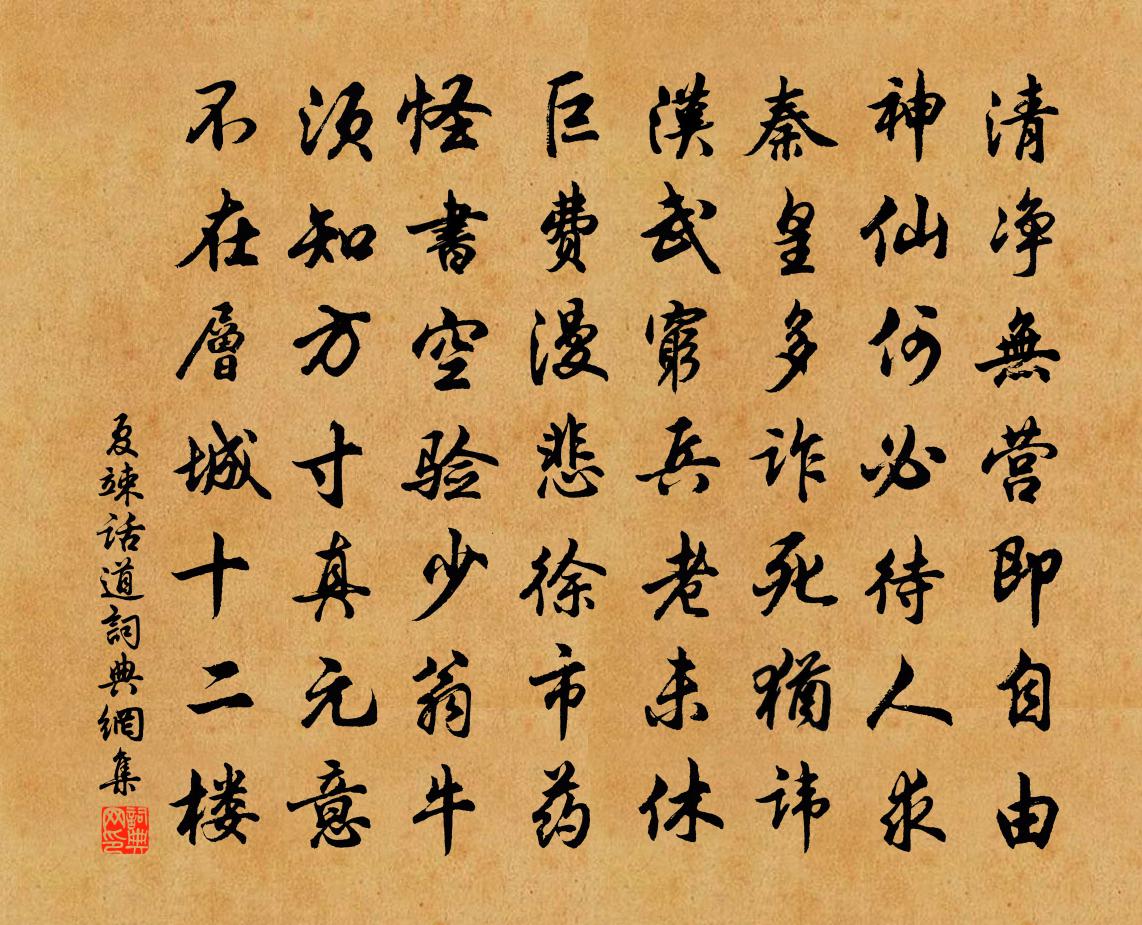 清净無营即自由
神仙何必待人求
秦皇多诈死猶讳
漢武窮兵老未休
巨费漫悲徐市药
怪書空验少翁牛
须知方寸真元意
不在層城十二楼
夏竦话道詞典網集
詞典网印